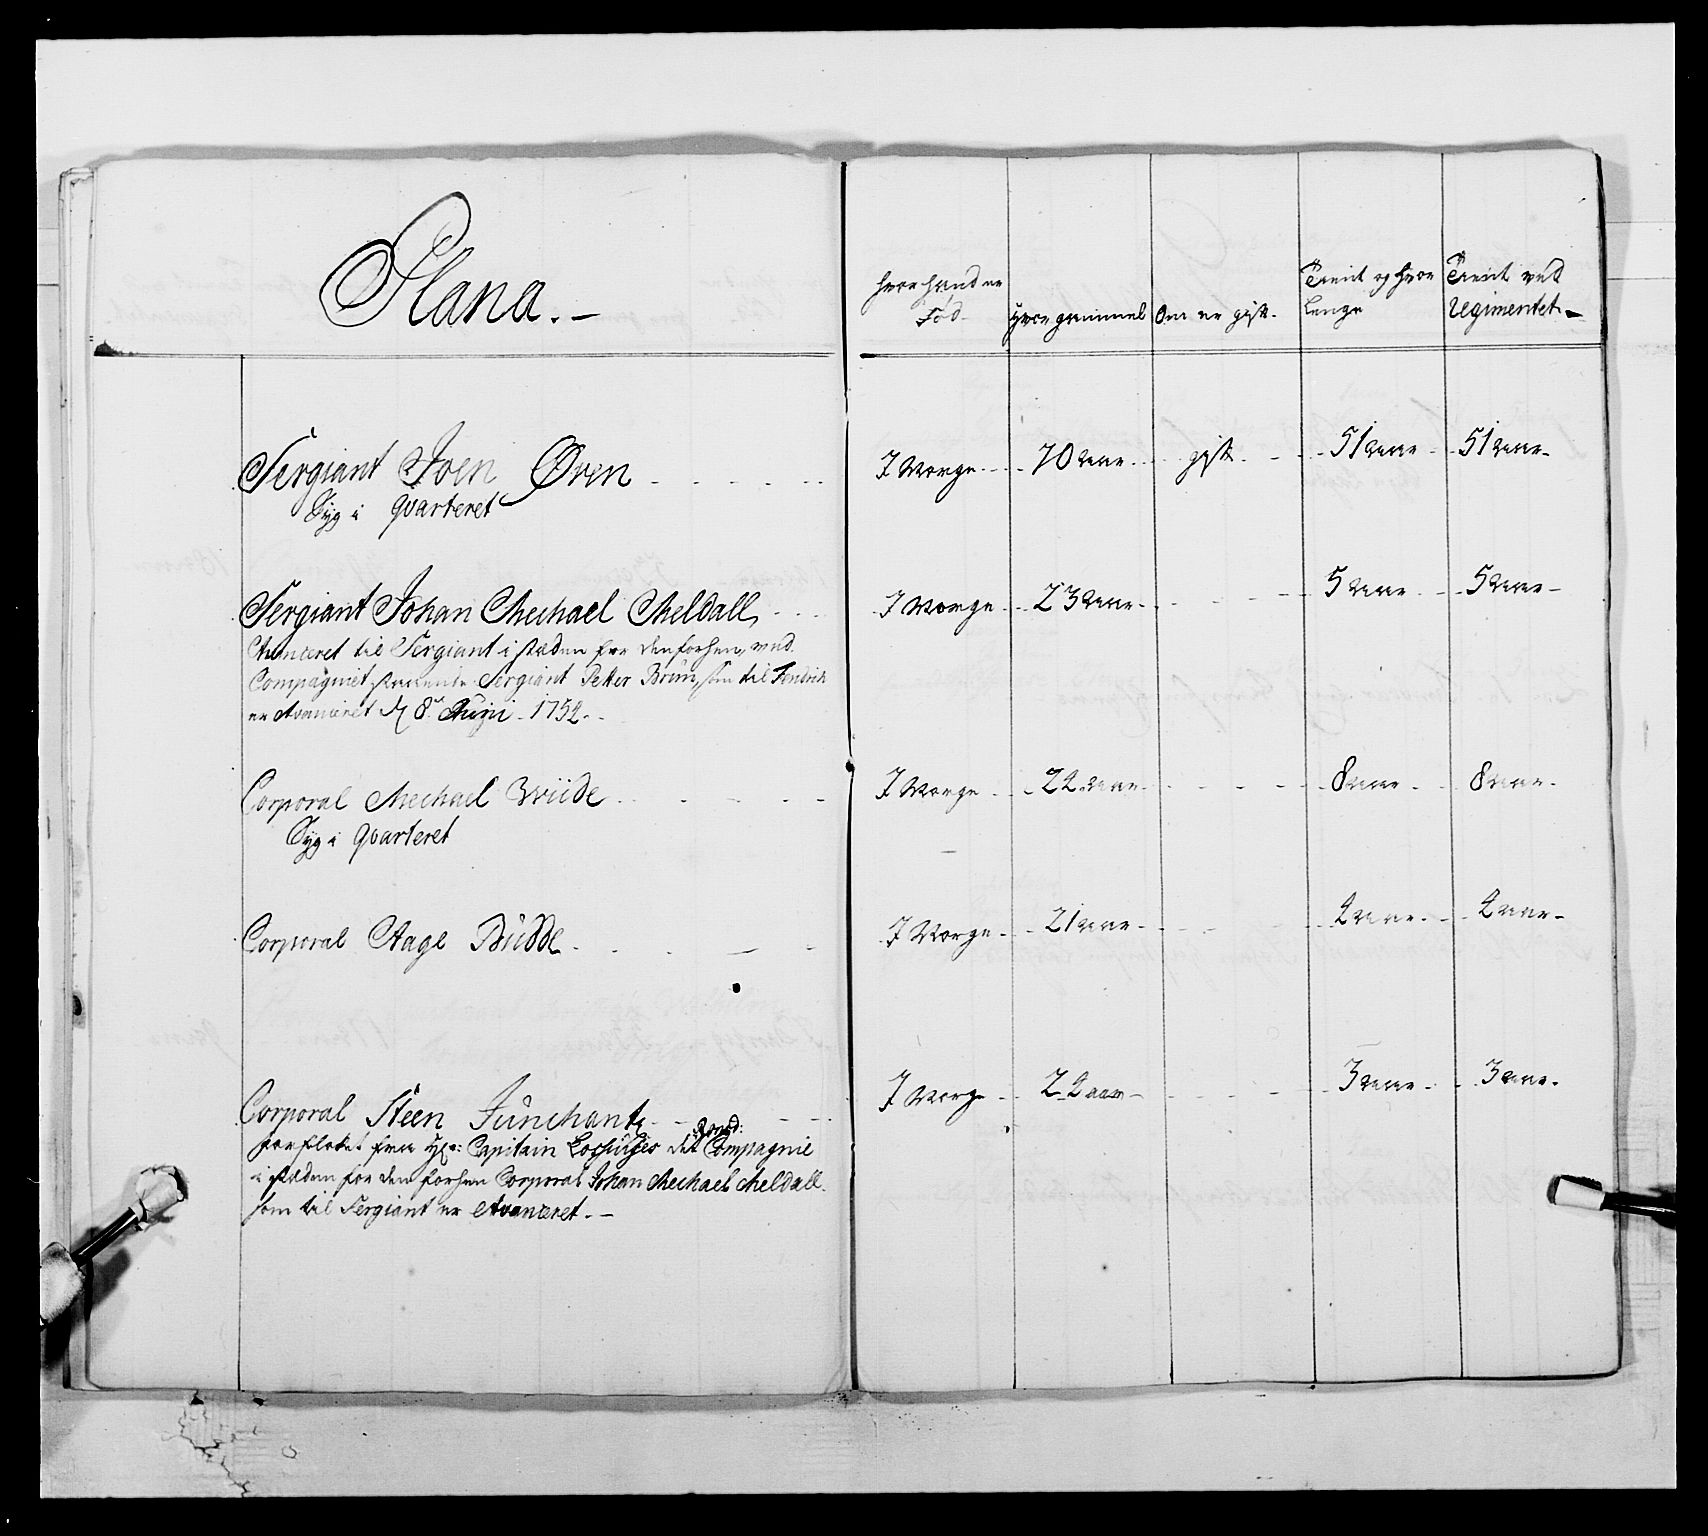 Plana.-
hvor hand er
Fød
Hvor gammel
Om er gift.
Tient og hvor
Lenge
Tient ved
Regimentet.
Sergiant Joen Øren
Syg i Qvarteret
I Norge
70 aar
gift
51 aar
51 aar
Sergiant Johan Mechael Meldall
Avanceret til Sergiant i stæden for den forhen ved
Compagniet staaende Sergiant Petter Brun, som til Fendrik
er Avanceret d 8de Juni 1752.
I Norge
23 aar
5 aar
5 aar
Corporal Mechael Wiide
Syg i Qvarteret
I Norge
22 aar
8 aar
8 aar
Corporal Aage Büdde
I Norge
21 aar
2 aar
2 aar
Corporal Steen Junchant
Forflötet fra Hr: Capitain det Compagnie
i stæden for den forhen Corporal Johan Mechael Meldall
som til Sergiant er Avanceret.-
I Norge
22 aar
3 aar
3 aar